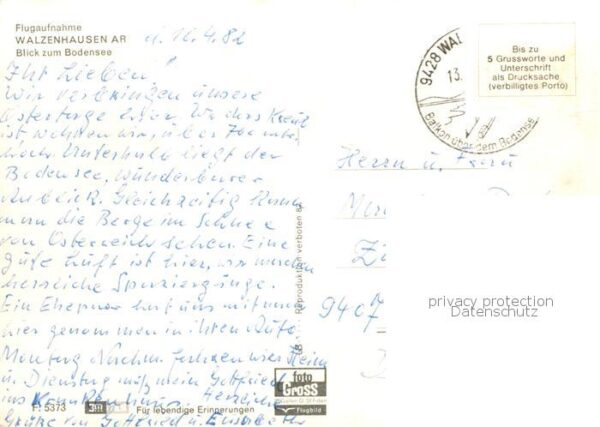 Flugaufnahme
WALZENHAUSEN AR
Blick zum Bodensee
d. 4.82
Ihr Lieben!
Wir verbringen unsere
Ostertage hier. Wo das
ist, wohnen wir, über
hoch. Unterhalb liegt der
Bodensee. Wunderbarer
Anblick. Gleichzeitig kann
man die Berge im Schnee
von Österreich sehen. Eine
gute Luft ist hier, wir machen
herrliche Spaziergänge.
Ein Ehepaar hat uns mit
hier genommen in ihren Auto.
Montag Nachm. fahren wir Heim
u. Dienstag muß mein Gottfried
ins Krankenhaus. Herzliche
Grüße von Gottfried u. Elisabeth
F. 5373
Für lebendige Erinnerungen
Reproduktion verboten
foto
Gross
Flugbild
9428 WAL
13.
Balkon über dem Bodensee
Bis zu
5 Grussworte und
Unterschrift
als Drucksache
(verbilligtes Porto)
Herrn u. Frau
9407
privacy protection
Datenschutz